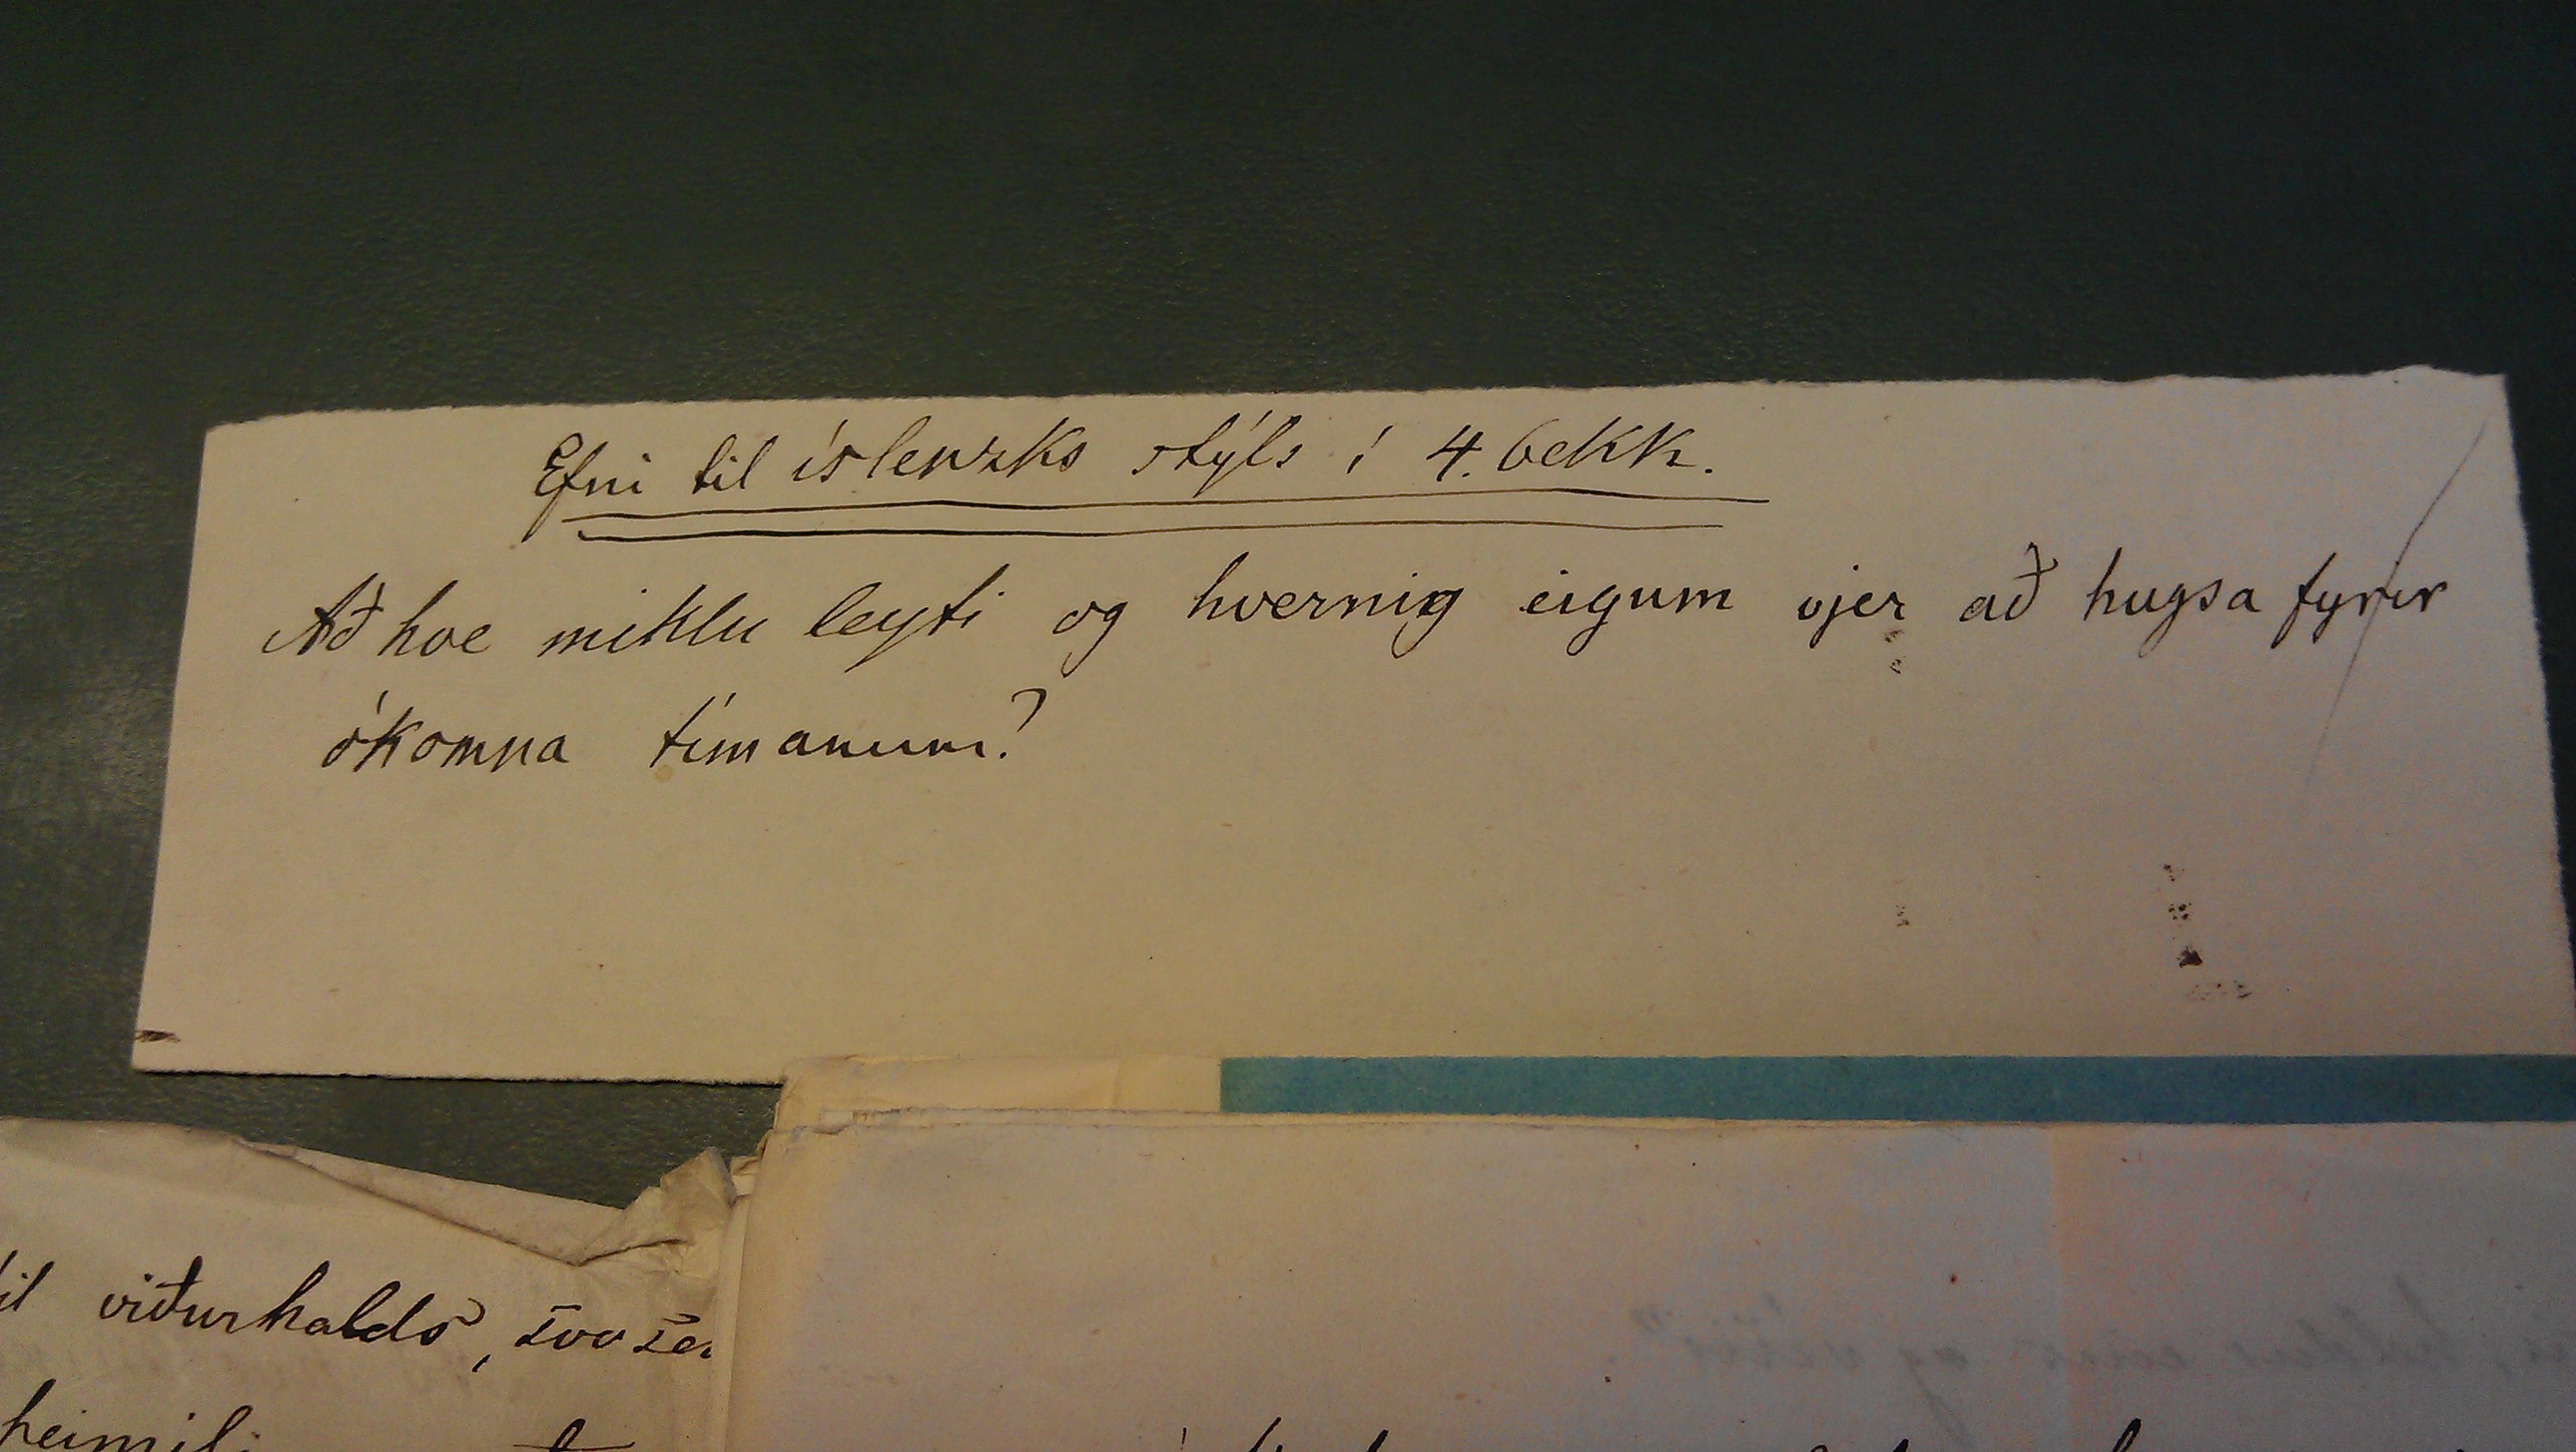 Efni til íslenzks stýls í 4. bekk.
Að hve miklu leyti og hvernig eigum vjer að hugsa fyrir
ókomna tímanum?
viðurhalds, svo